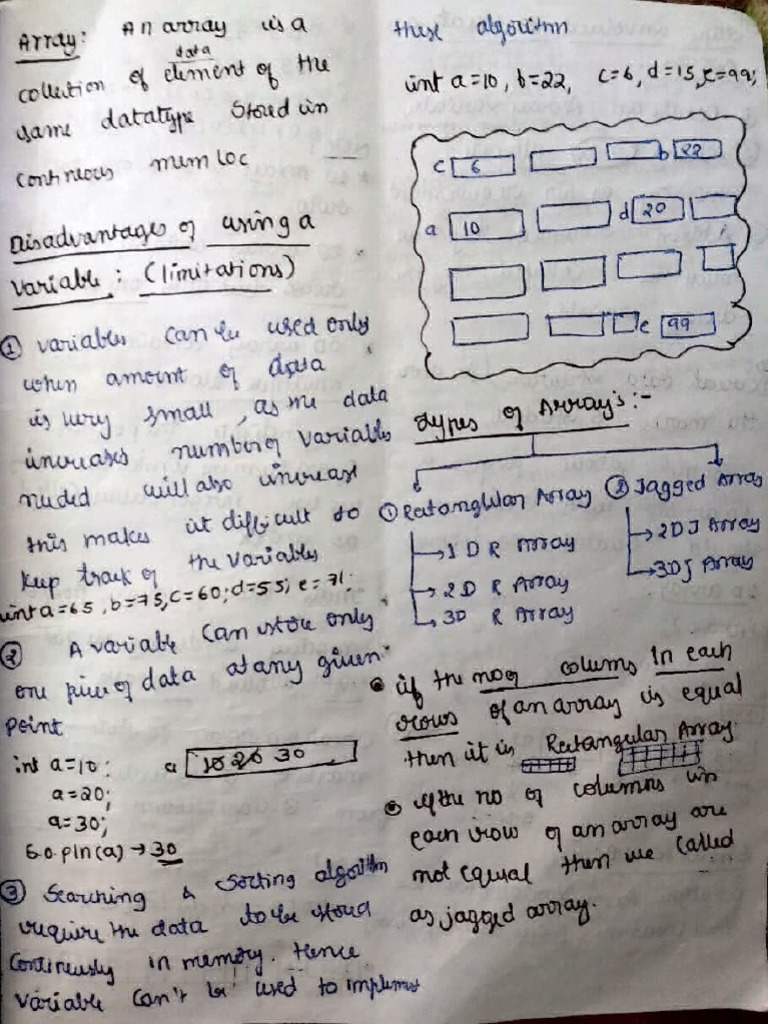 Array: An array is a
collection of data element of the
same datatype stored in
continous mem loc
Disadvantages of using a
variable: (limitations)
① variables can be used only
when amount of data
is very small, as the data
increases number of variables
needed will also increase
this makes it difficult to
keep track of the variables
int a=65, b=75, c=60; d=55; e=71.
② A variable can store only
one piece of data at any given
point
int a=10; a 10 20 30
a=20;
a=30;
S.o.pln(a) → 30
③ Searching & sorting algorithm
require the data to be stored
continuously in memory. Hence
variable can't be used to implement
these algorithm
int a=10, b=22, c=6, d=15, e=99;
c 6 b 22
a 10 d 20
e 99
Types of Array's:-
① Ratangular Array ② Jagged Array
1D R Array → 2D J Array
→ 2D R Array → 3D J Array
3D R Array
• if the no of colums in each
rows of an array is equal
then it is Rectangular Array.
• if the no of columns in
each row of an array are
not equal then we called
as jagged array.